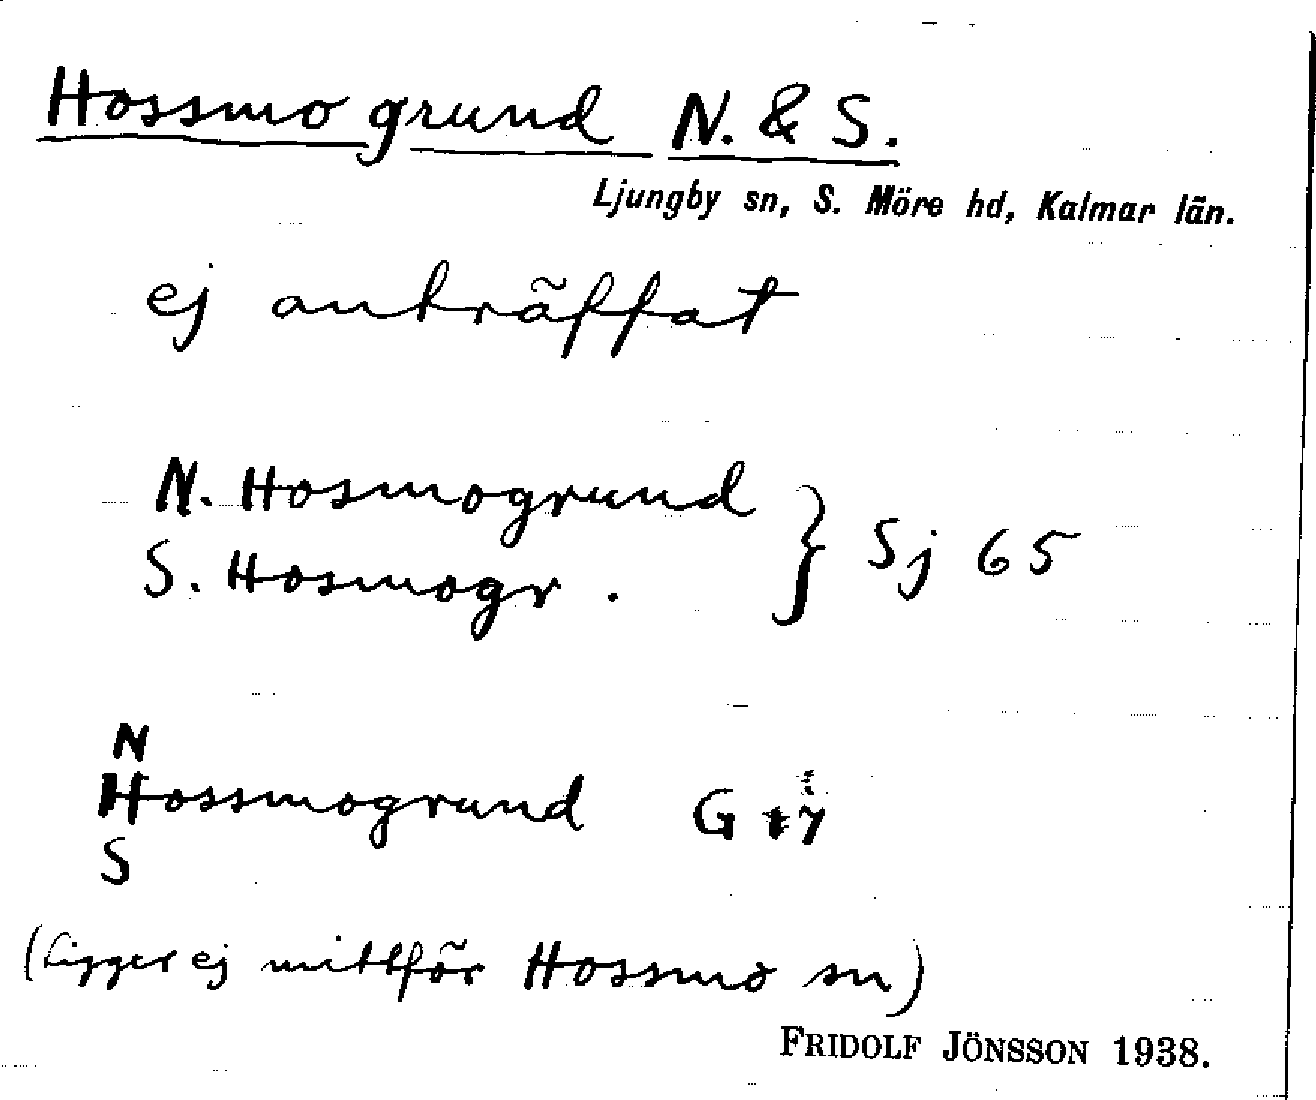 Hossmo grund N. & S.
Ljungby sn, S. Möre hd, Kalmar län.
ej anträffat
N. Hosmogrund
S. Hosmogr. } Sj 65
N
Hossmogrund G
S
(Ligger ej mittför Hossmo sn)
FRIDOLF JÖNSSON 1938.